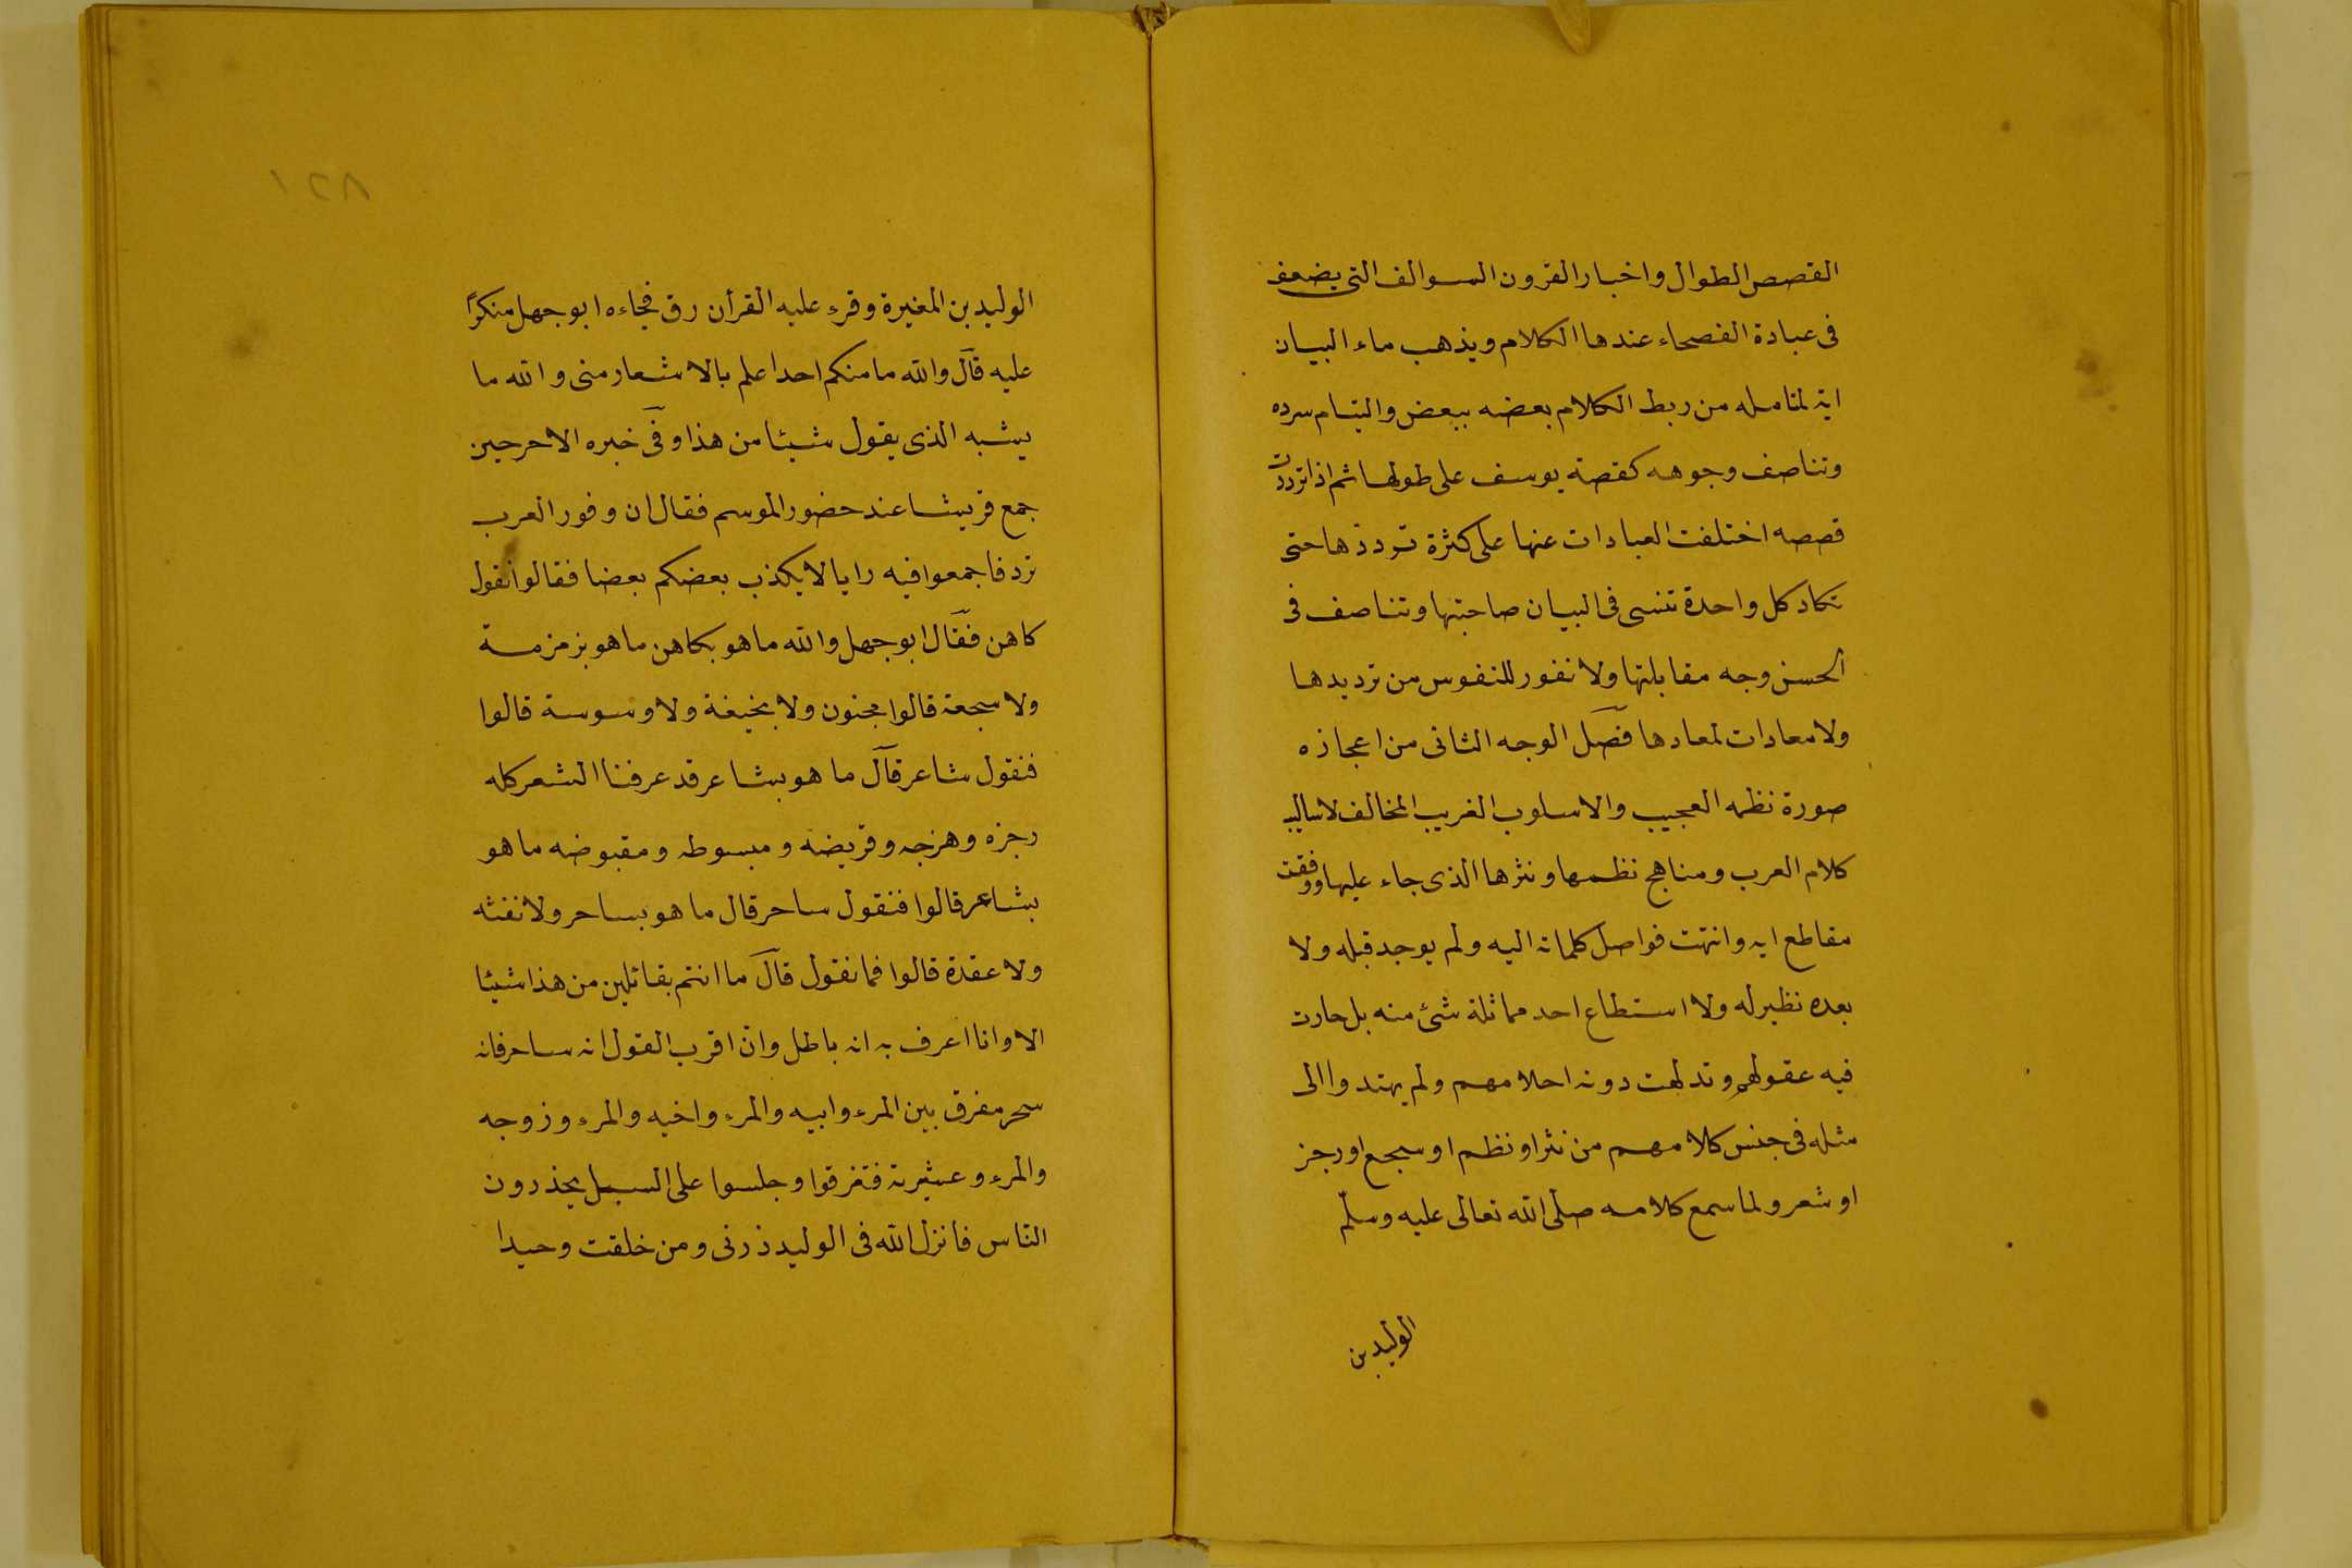 القصص الطوال واخبار القرون السوالف التى يضعف
فى عبادة الفصحاء عندها الكلام ويذهب ماء البيان
اية لمتامله من ربط الكلام بعضه ببعض والتيام سرده
وتناصف وجوهه كقصة يوسف على طولها ثم اذا ترددت
قصصه اختلفت العبادات عنها على كثرة ترددها حتى
تكاد كل واحدة تنسى فى البيان صاحبتها وتناصف فى
الحسن وجه مقابلتها ولا نفور للنفوس من ترديدها
ولا معادات لمعادها فصل الوجه الثانى من اعجازه
صورة نظمه العجيب والاسلوب الغريب المخالف لاساليب
كلام العرب ومناهج نظمها ونثرها الذى جاء عليها ووقفت
مقاطع ايه وانتهت فواصل كلماته اليه ولم يوجد قبله ولا
بعده نظير له ولا استطاع احد مماثلة شئ منه بل حارت
فيه عقولهم وتدلهت دونه احلامهم ولم يهتدوا الى
مثله فى جنس كلامهم من نثر او نظم او سجع او رجز
او شعر ولما سمع كلامه صلى الله تعالى عليه وسلم
الوليد بن
١٢٨
الوليد بن المغيرة وقرء عليه القرأن رق فجاءه ابو جهل منكرًا
عليه قال والله ما منكم احد اعلم بالاشعار منى والله ما
يشبه الذى يقول شيئا من هذا وفى خبره الاخر حين
جمع قريشا عند حضور الموسم فقال ان وفور العرب
ترد فاجمعوا فيه رايا لا يكذب بعضكم بعضا فقالوا نقول
كاهن فقال ابو جهل والله ما هو بكاهن ما هو بزمزمة
ولا سجعة قالوا مجنون ولا بخيفة ولا وسوسة قالوا
فنقول شاعر قال ما هو بشاعر قد عرفنا الشعر كله
رجزه وهزجه وقريضه ومبسوطه ومقبوضه ما هو
بشاعر قالوا فنقول ساحر قال ما هو بساحر ولا نفثه
ولا عقدة قالوا فما نقول قال ما انتم بقائلين من هذا شيئا
الا وانا اعرف به انه باطل وان اقرب القول انه ساحر فانه
سحر مفرق بين المرء وابيه والمرء واخيه والمرء وزوجه
والمرء وعشيرته فتفرقوا وجلسوا على السبل يحذرون
الناس فانزل الله فى الوليد ذرنى ومن خلقت وحيدا